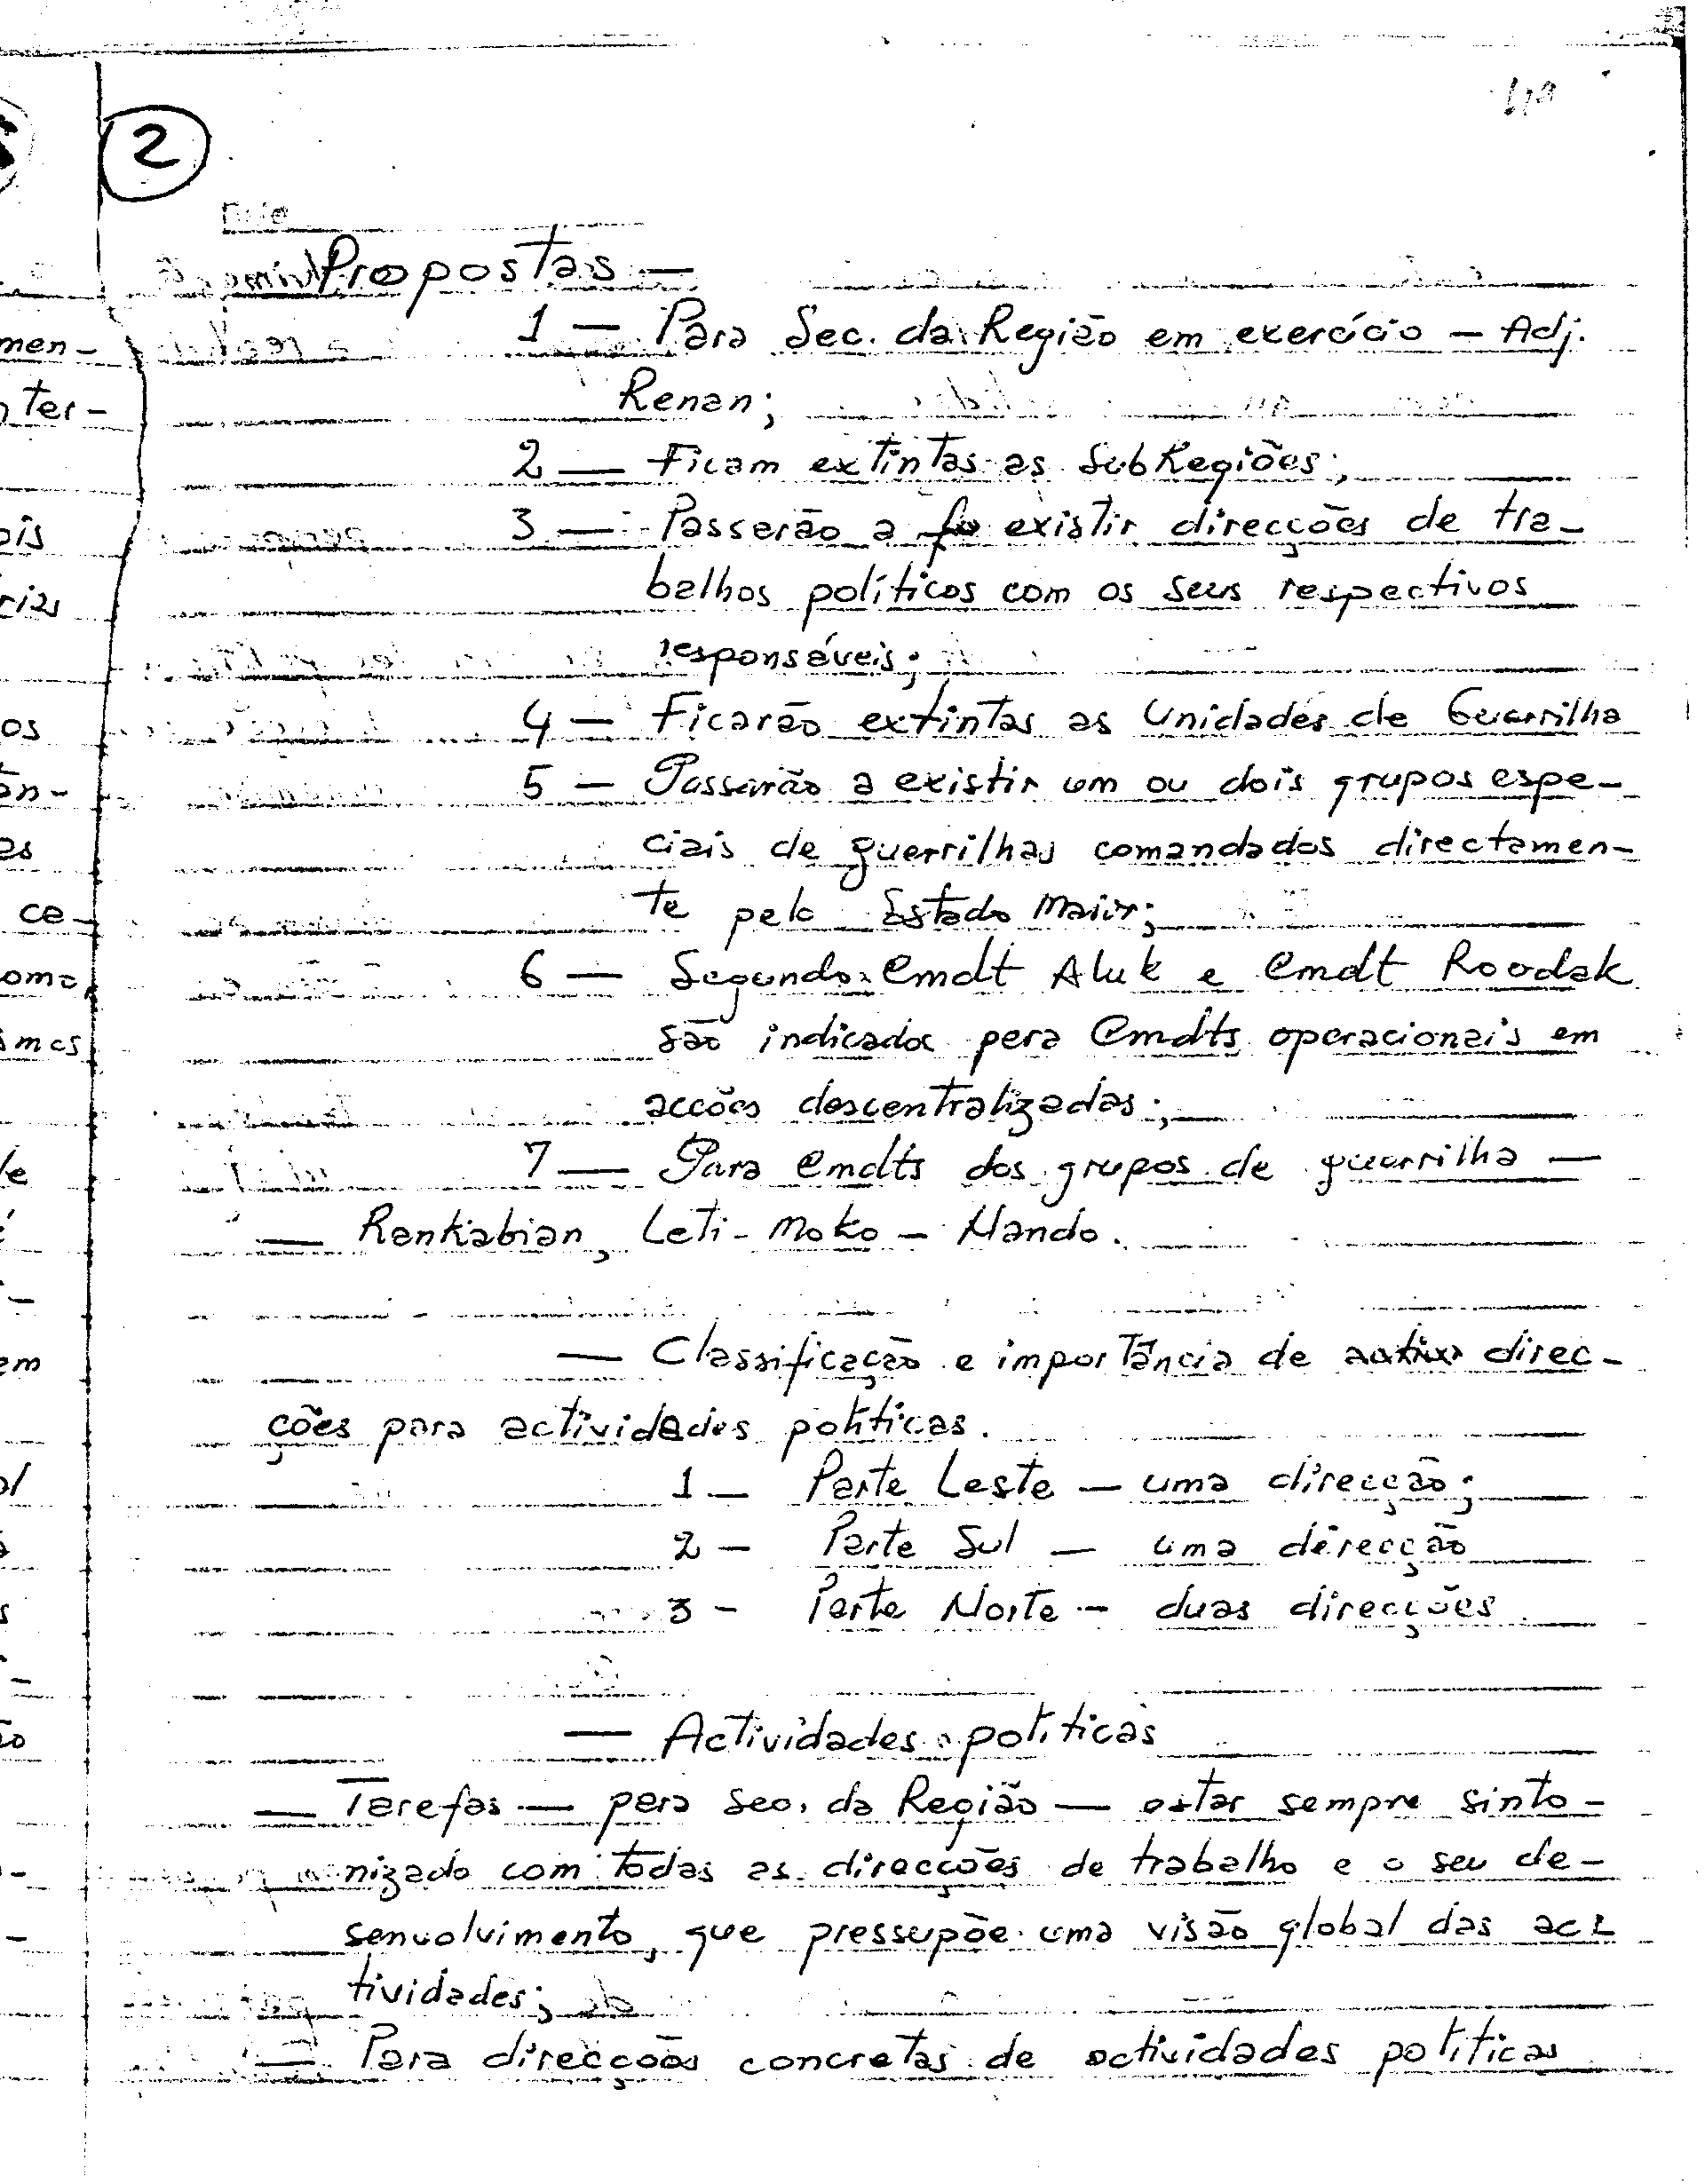 2
Propostas —
1 — Para Sec. da Região em exercício — Adj.
Renan;
2 — Ficam extintas as SubRegiões;
3 — Passarão a existir direcções de tra-
balhos políticos com os seus respectivos
responsáveis;
4 — Ficarão extintas as Unidades de Guerrilha
5 — Passarão a existir um ou dois grupos espe-
ciais de guerrilhas comandados directamen-
te pelo Estado Maior;
6 — Segundo Cmdt Aluk e Cmdt Roodak
são indicados para Cmdts operacionais em
acções descentralizadas;
7 — Para Cmdts dos grupos de guerrilha —
— Rankabian, Leti-Moko — Nando.
— Classificação e importância de direc-
ções para actividades políticas.
1 — Parte Leste — uma direcção;
2 — Parte Sul — uma direcção
3 — Parte Norte — duas direcções.
— Actividades políticas
— Tarefas — para Sec. da Região — estar sempre sinto-
nizado com todas as direcções de trabalho e o seu de-
senvolvimento, que pressupõe uma visão global das ac-
tividades;
— Para direcções concretas de actividades políticas
men-
ter-
ois
rias
os
ân-
es
ce-
em
ão